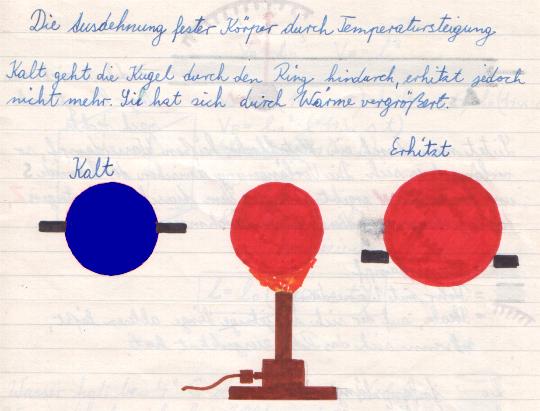 Die Ausdehnung fester Körper durch Temperatursteigung
Kalt geht die Kugel durch den Ring hindurch, erhitzt jedoch
nicht mehr. Sie hat sich durch Wärme vergrößert.
Kalt
Erhitzt